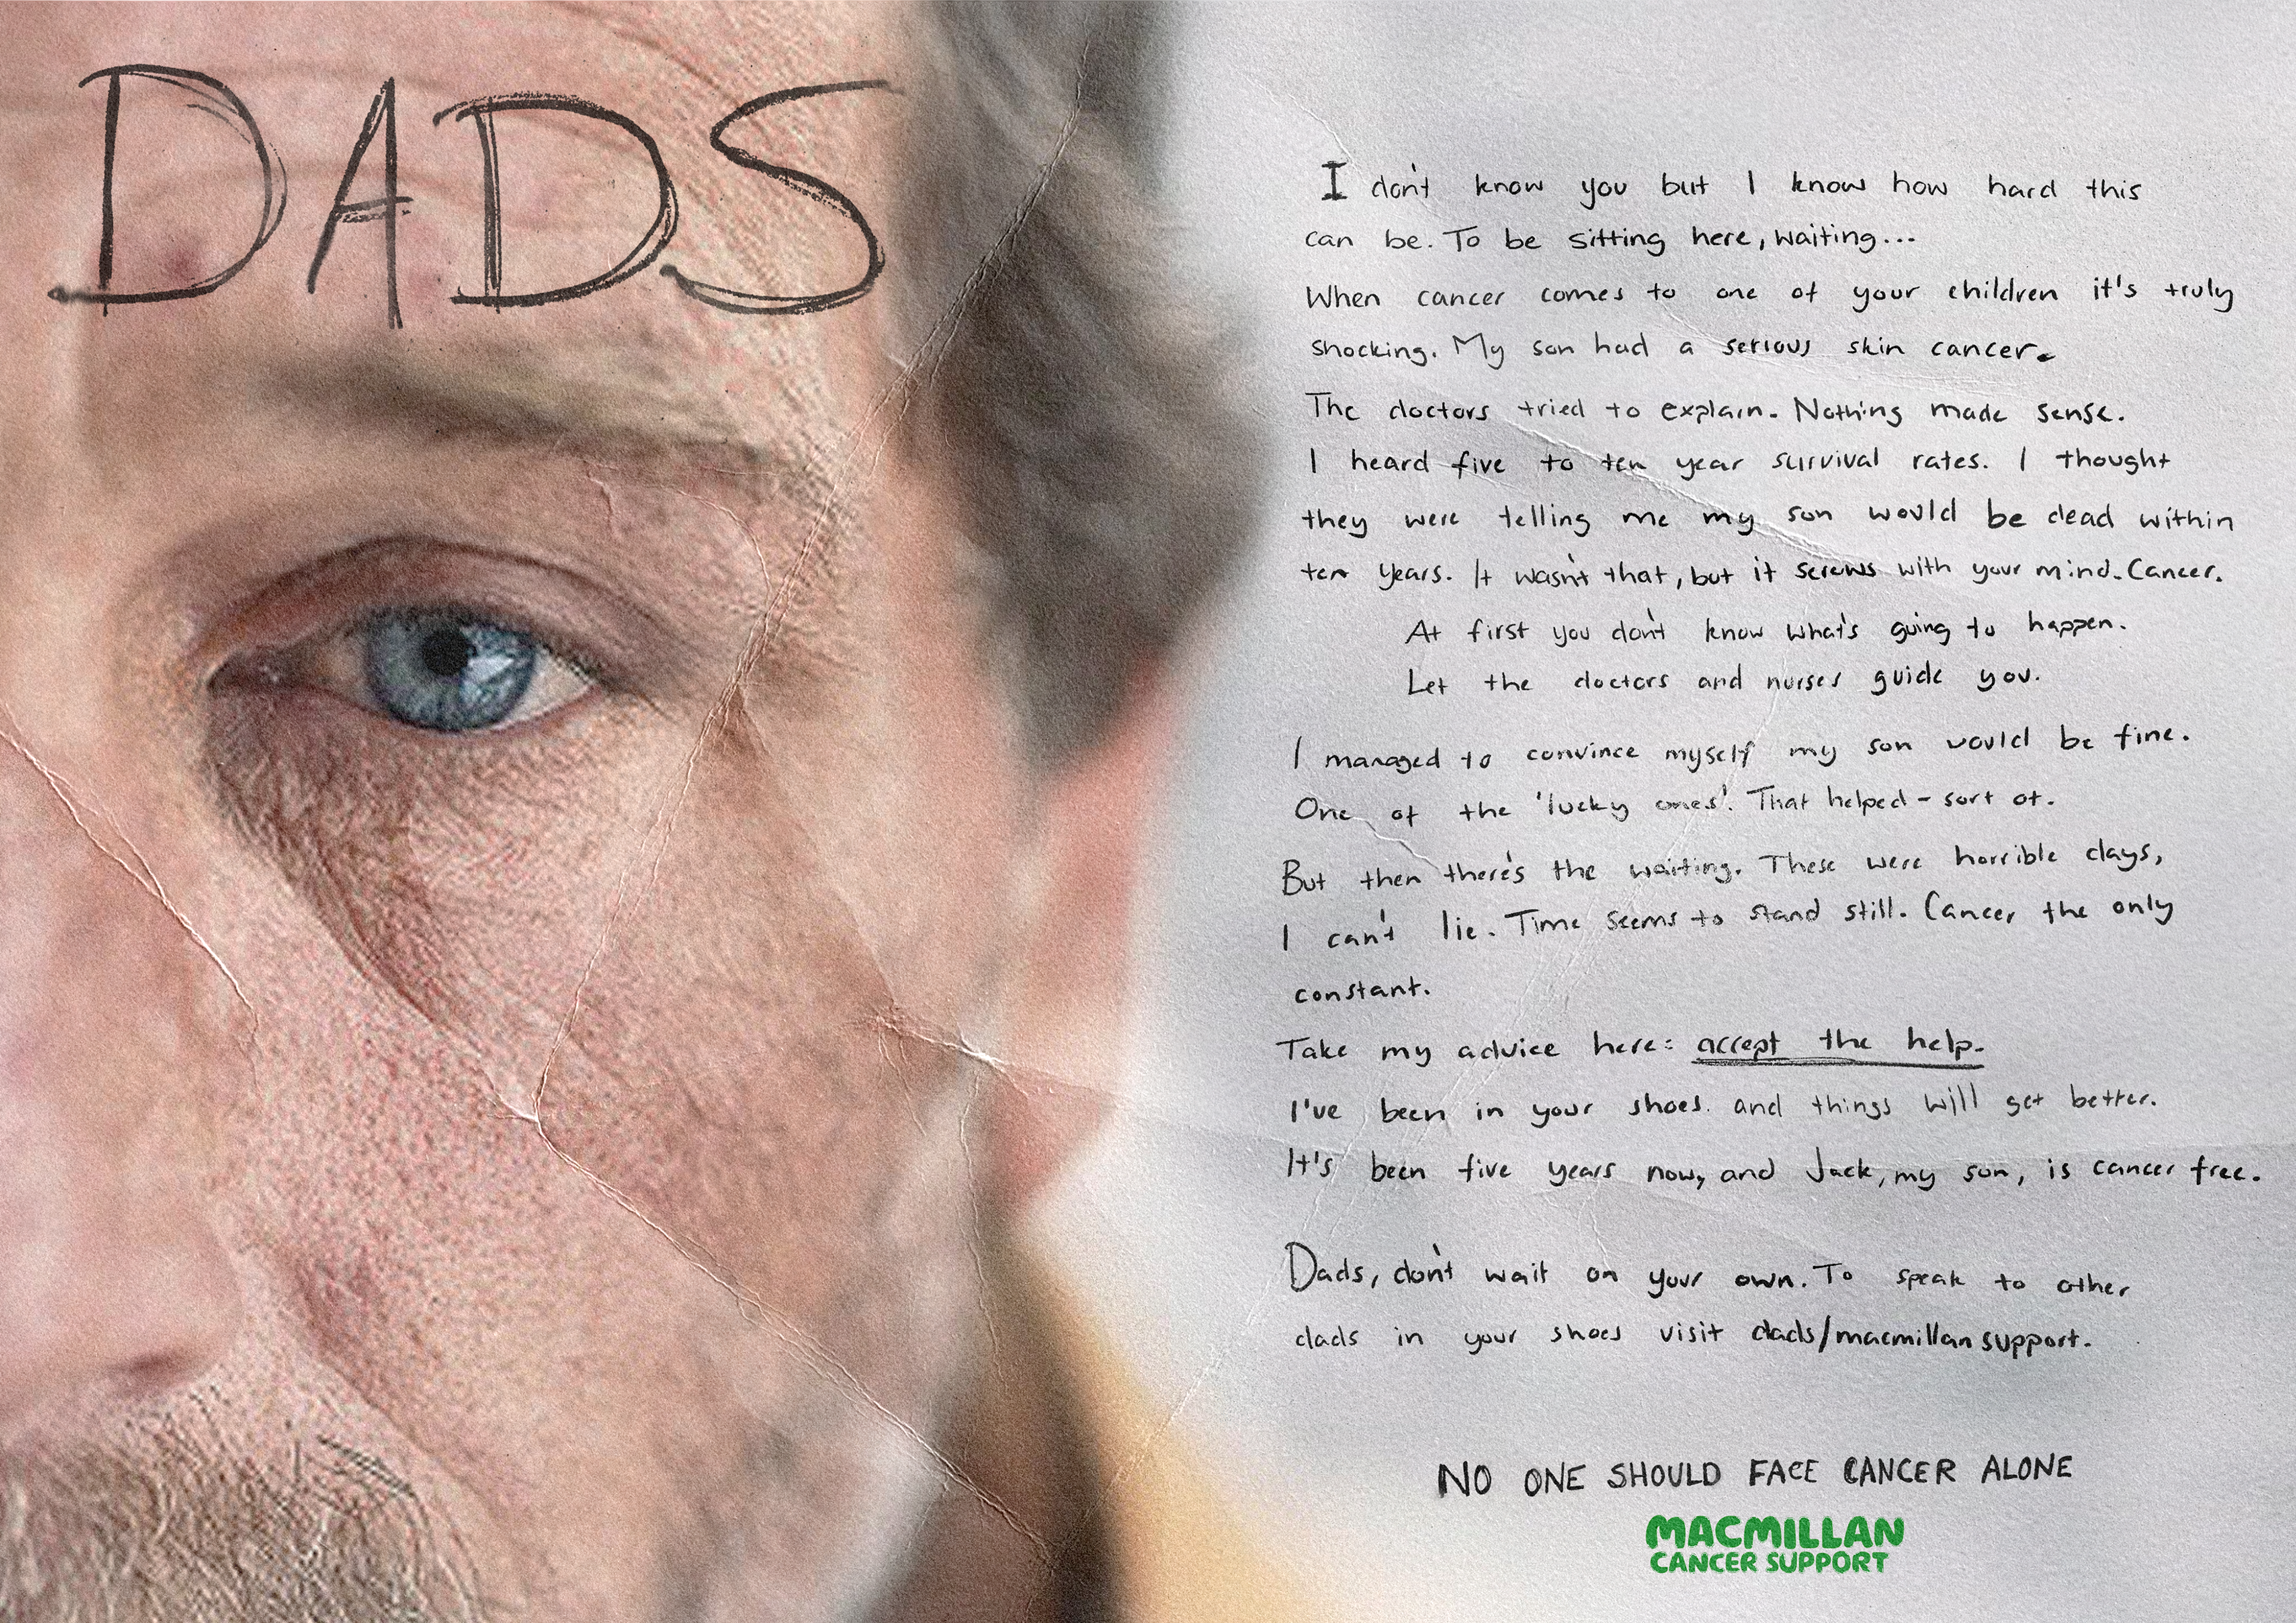 DADS
I don't know you but I know how hard this
can be. To be sitting here, waiting...
When cancer comes to one of your children it's truly
shocking. My son had a serious skin cancer.
The doctors tried to explain. Nothing made sense.
I heard five to ten year survival rates. I thought
they were telling me my son would be dead within
ten years. It wasn't that, but it screws with your mind. Cancer.
At first you don't know what's going to happen.
Let the doctors and nurses guide you.
I managed to convince myself my son would be fine.
One of the 'lucky ones'. That helped - sort of.
But then there's the waiting. These were horrible days,
I can't lie. Time seems to stand still. Cancer the only
constant.
Take my advice here: accept the help.
I've been in your shoes. and things will get better.
It's been five years now, and Jack, my son, is cancer free.
Dads, don't wait on your own. To speak to other
dads in your shoes visit dads/macmillansupport.
NO ONE SHOULD FACE CANCER ALONE
MACMILLAN
CANCER SUPPORT